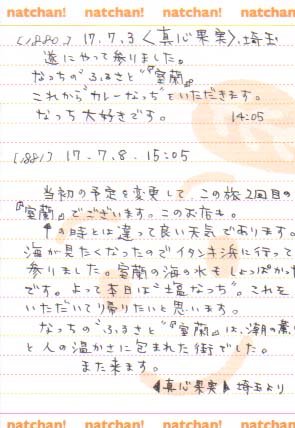 natchan! natchan! natchan! natchan!
[1880.] 17.7.3 〈真心果実〉, 埼玉
遂にやって参りました。
なっちの"ふるさと"『室蘭』
これから"カレーなっち"をいただきます。
なっち大好きです。 14:05
[1881.] 17.7.8. 15:05
当初の予定を変更して、この旅2回目の
『室蘭』でございます。このお店も。
↑の時とは違って良い天気であります。
海が見たくなったのでイタンキ浜に行って
参りました。室蘭の海の水もしょっぱかった
です。よって本日は"塩なっち"。これを
いただいて帰りたいと思います。
なっちの"ふるさと"『室蘭』は、潮の薫り
と人の温かさに包まれた街でした。
また来ます。
◀真心果実▶ 埼玉より
natchan! natchan! natchan! natchan!